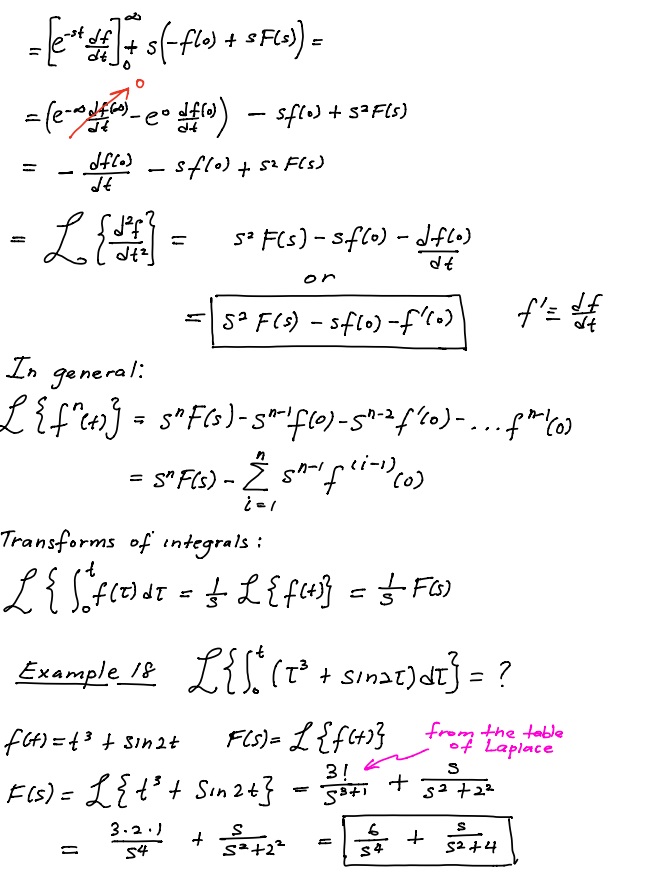 = [e^{-st} df/dt]_0^∞ + s(-f(0) + sF(s)) =
0
= (e^{-∞} df(∞)/dt - e^0 df(0)/dt) - sf(0) + s²F(s)
= - df(0)/dt - sf(0) + s² F(s)
= ℒ{d²f/dt²} = s² F(s) - sf(0) - df(0)/dt
or
= s² F(s) - sf(0) - f'(0)    f' ≡ df/dt
In general:
ℒ{fⁿ(t)} = sⁿF(s) - s^{n-1}f(0) - s^{n-2}f'(0) - ... f^{n-1}(0)
= sⁿF(s) - Σ_{i=1}^{n} s^{n-1} f^{(i-1)}(0)
Transforms of integrals:
ℒ{∫_0^t f(τ)dτ = 1/s ℒ{f(t)} = 1/s F(s)
Example 18    ℒ{∫_0^t (τ³ + sin2τ)dτ} = ?
f(t) = t³ + sin2t    F(s) = ℒ{f(t)}
from the table
of Laplace
F(s) = ℒ{t³ + Sin2t} = 3!/s^{3+1} + s/(s² + 2²)
= 3·2·1/s⁴ + s/(s²+2²) = 6/s⁴ + s/(s²+4)